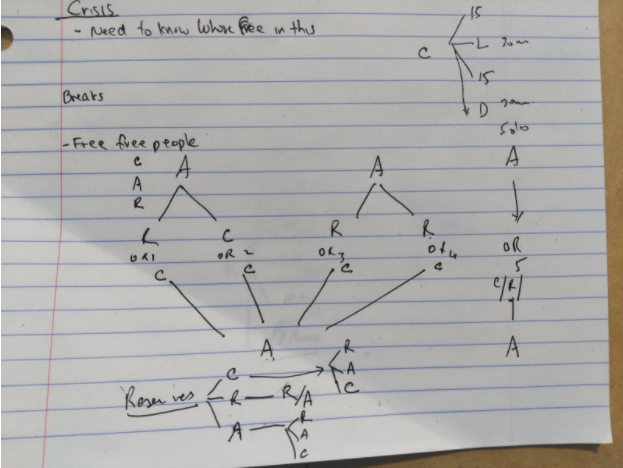 Crisis
- Need to know whose free in this
15
C L 30m
15
D 30m
Breaks
Solo
- Free free people
C A A A
A
R
R C R R
OR1 OR2 OR3 OR4 OR5
C C C C C/R/
A A
R
C A
Reserves R R/A C
A R
A
C